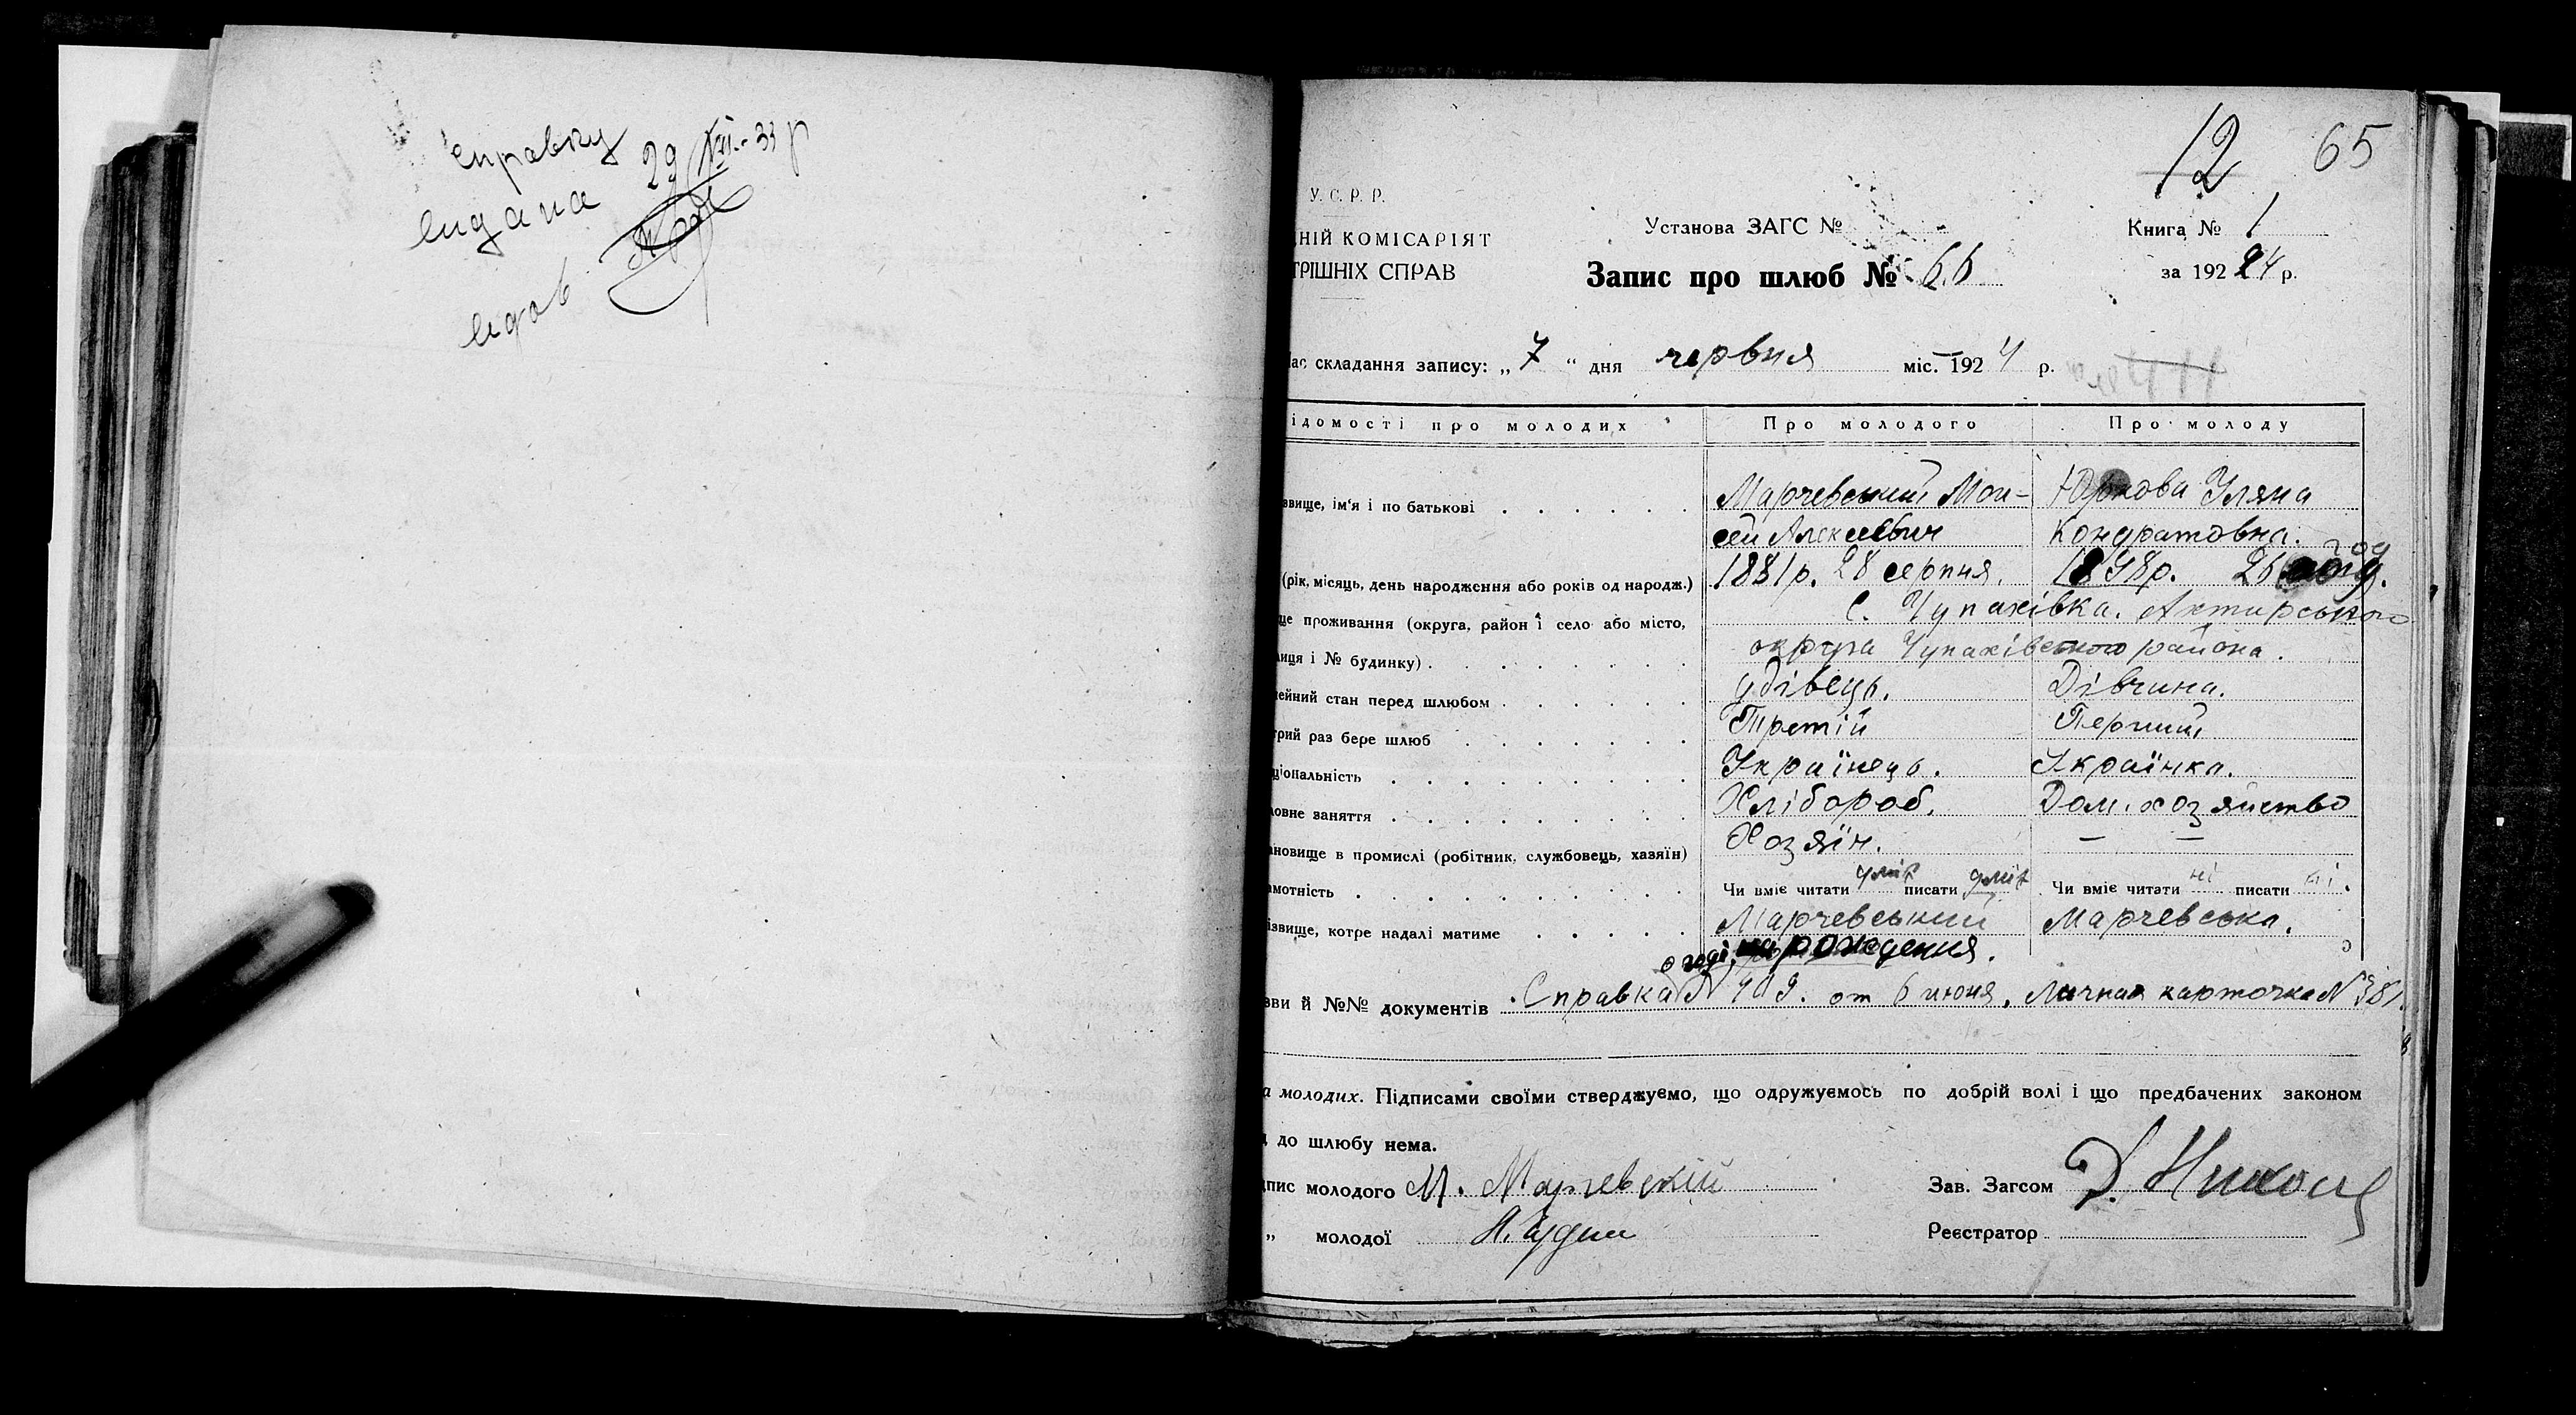 справку
видана 29/VII-33 р
видав
12 65
У. С. Р. Р.
НІЙ КОМІСАРІЯТ
ТРІШНІХ СПРАВ
Установа ЗАГС №
Запис про шлюб № 66
Книга № 1
за 192 24 р.
ас складання запису: „ 7 “ дня червня міс. 192 4 р.
ідомості про молодих Про молодого Про молоду
звище, ім'я і по батькові Марчевський Мои- Юркова Уляна
сей Алексеевич Кондратовна.
год
(рік, місяць, день народження або років од народж.) 1881 р. 28 серпня. 1898 р. 26
ще проживання (округа, район і село або місто, С. Чупахівка. Ахтирського
лиця і № будинку) округа Чупахівского района.
ейний стан перед шлюбом удівець. Дівчина.
трий раз бере шлюб Третій Перший
ціональність Українець. Українка.
овне заняття Хлібороб. Дом. хозяйство
ановище в промислі (робітник, службовець, хазяїн) Хозяїн. — —
амотність Чи вміє читати уміє писати уміє Чи вміє читати ні писати ні.
ізвище, котре надалі матиме Марчевський Марчевська.
о годі нарождения.
зви й №№ документів Справка N 409. от 6 июня, Личная карточка N 381.
а молодих. Підписами своїми стверджуємо, що одружуємось по добрій волі і що предбачених законом
д до шлюбу нема.
дпис молодого М. Марчевскій Зав. Загсом
„ молодої Реєстратор